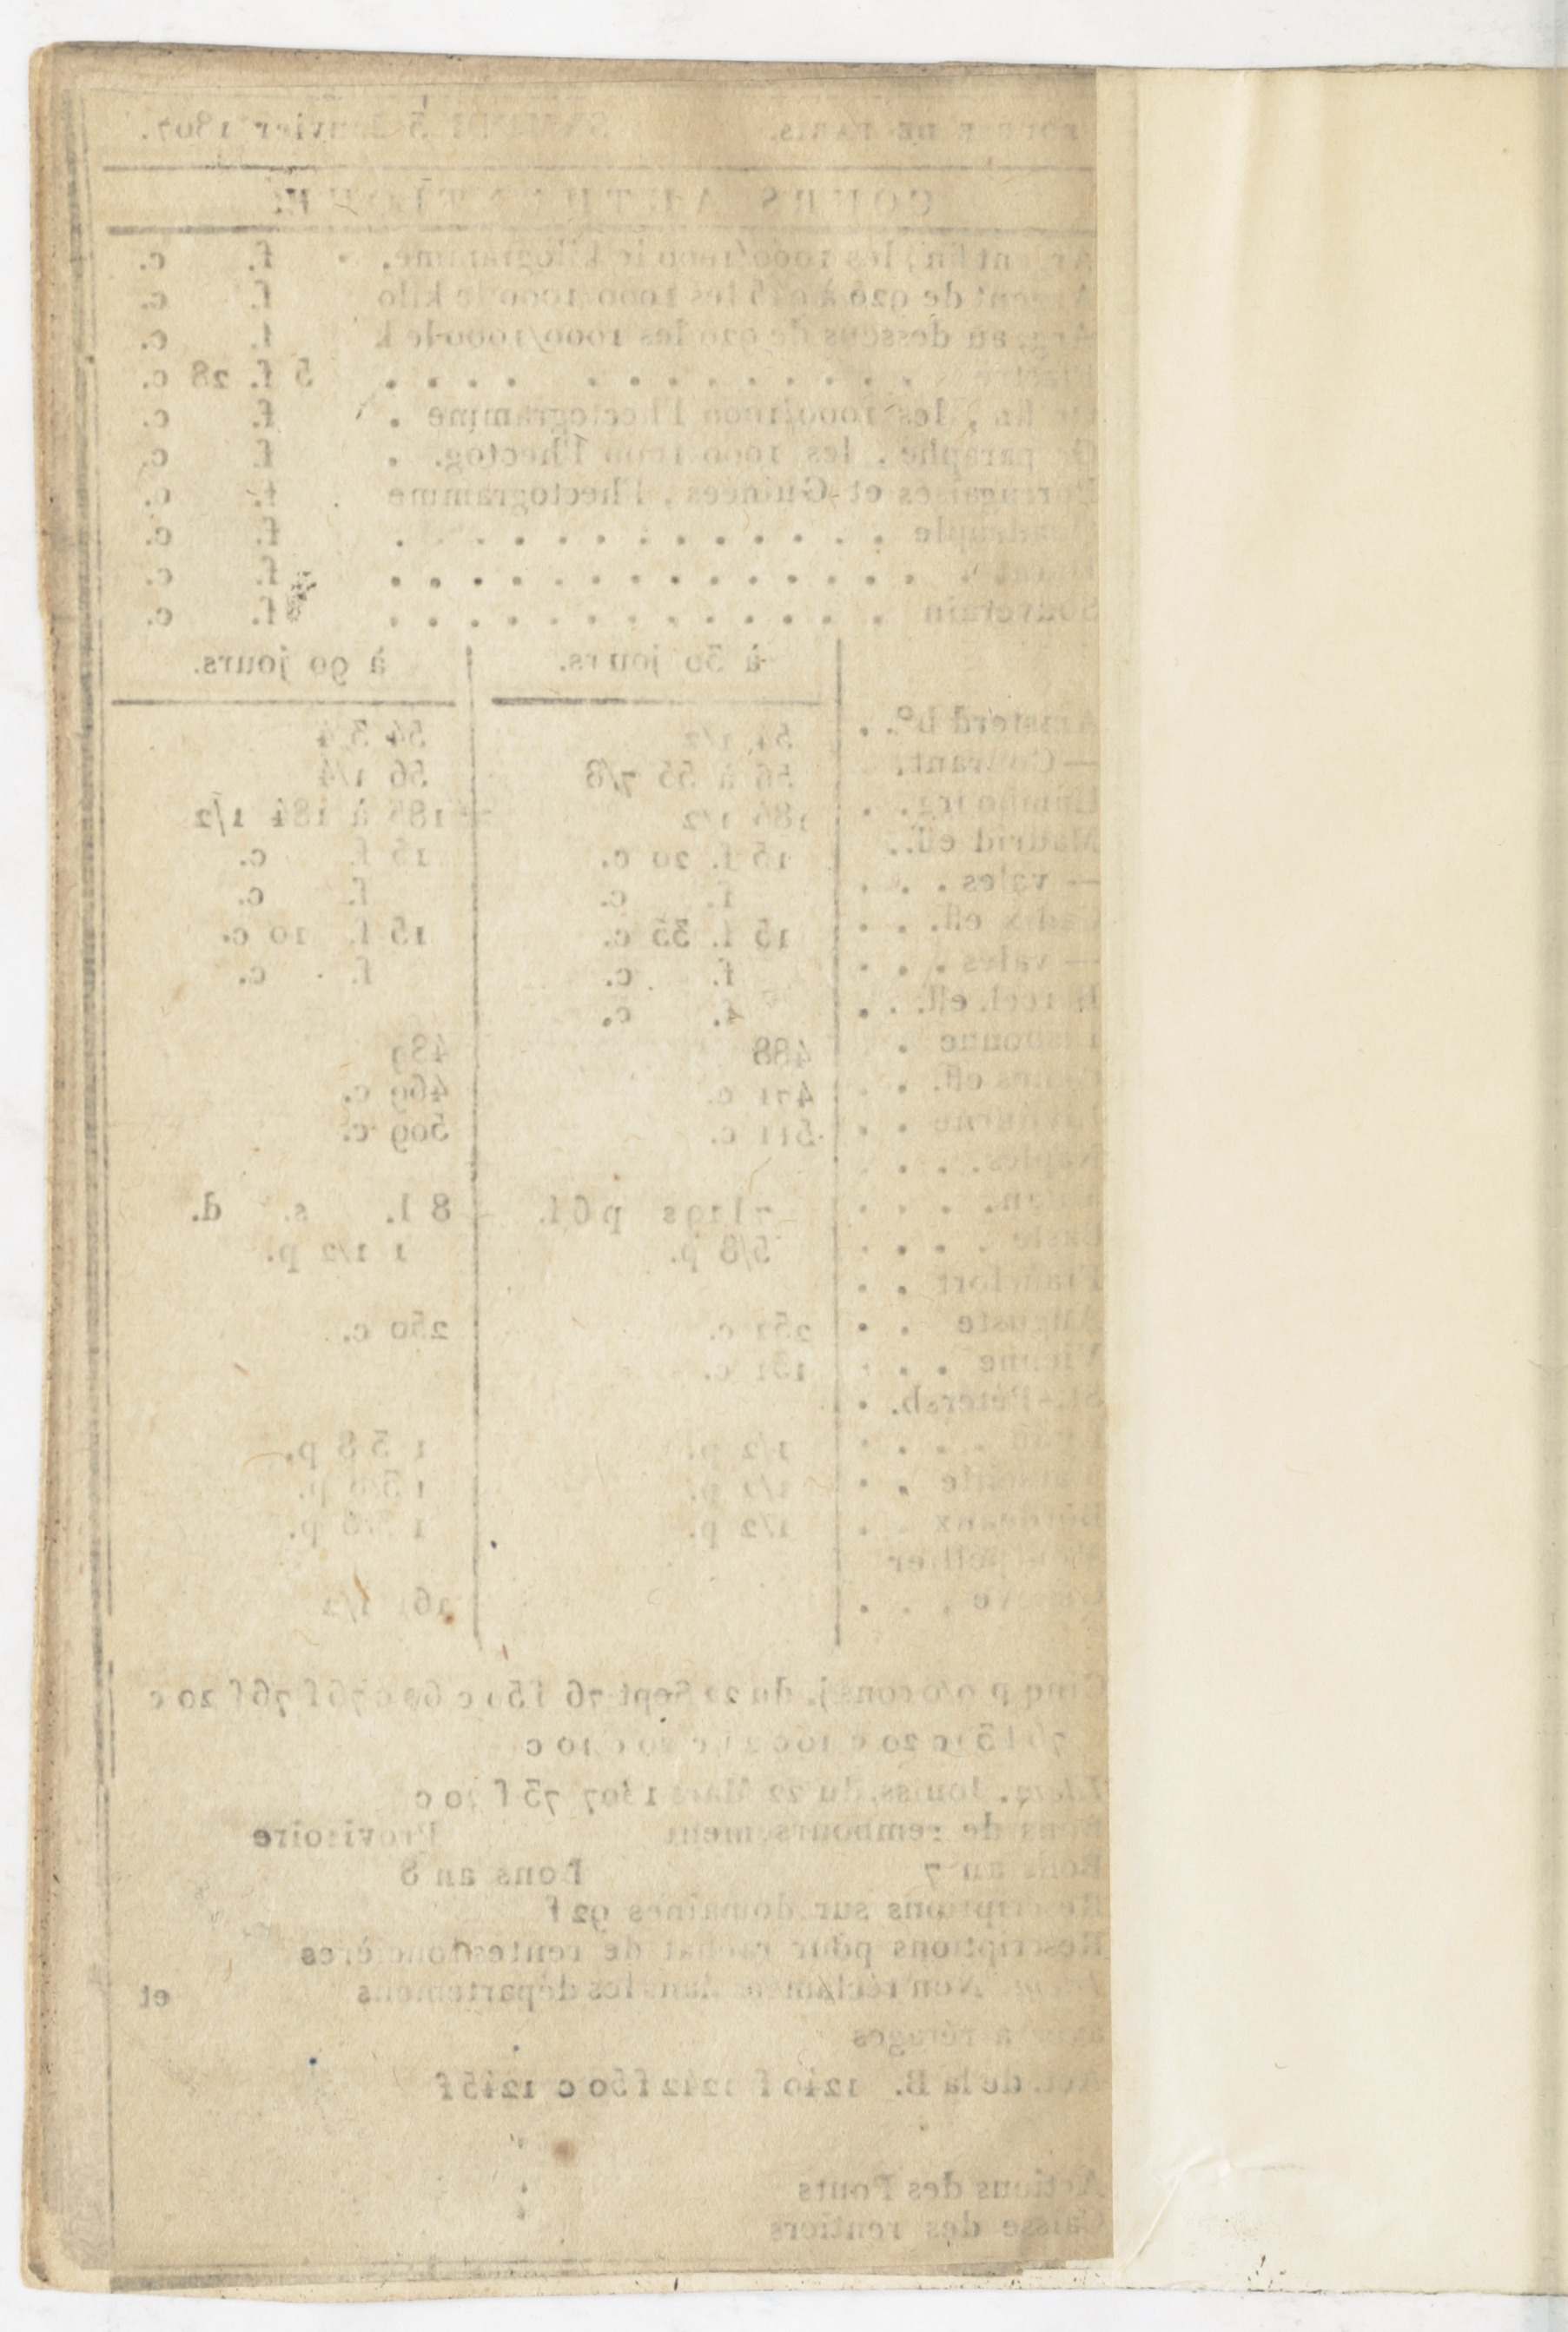 BOURSE DE PARIS. SAMEDI 3 Janvier 1807.
COURS AUTHENTIQUE
Argent fin, les 1000/1000 le kilogramme. f. c.
Argent de 920 à 945 les 1000/1000 le kilo f. c.
Arg. au dessous de 920 les 1000/1000 le k f. c.
Piastre . . . . . . . . . . . . 5 f. 28 c.
Or fin, les 1000/1000 l'hectogramme . f. c.
Or paraphe, les 1000/1000 l'hectog. . f. c.
Portugaises et Guinées, l'hectogramme f. c.
Quadruple . . . . . . . . . . . . f. c.
Ducat . . . . . . . . . . . . . f. c.
Souverain . . . . . . . . . . . . f. c.
à 30 jours. à 90 jours.
Amsterd b.º . . 54 1/2 54 3/4
— Courant. 56 à 55 7/8 56 1/4
Hambourg. . 186 1/2 185 à 184 1/2
Madrid eff. . 15 f. 20 c. 15 f. c.
— vales . . . f. c. f. c.
Cadix eff. . . 15 f. 35 c. 15 f. 10 c.
— vales . . . f. c. f. c.
Barcel. eff. . . f. c.
Lisbonne . 488 489
Gênes eff. . . 471 c. 469 c.
Livourne . . 511 c. 509 c.
Naples. . . .
Milan. . . . 7 l 19 s p 6 f. 8 l. s. d.
Basle . . . . 5/8 p. 1 1/2 p.
Francfort . .
Auguste . . 252 c. 250 c.
Vienne . . . 131 c.
St.-Pétersb. .
Lyon . . . . 1/2 p. 1 5/8 p.
Marseille . . 1/2 p. 1 5/8 p.
Bordeaux . . 1/2 p. 1 5/8 p.
Montpellier
Genève . . . 161 1/2
Cinq p 0/0 cons j. du 22 Sept 76 f 50 c 60 c 76 f 76 f 20 c
76 f 15 c 20 c 10 c 20 c 10 c
Idem. Jouiss. du 22 Mars 1807 73 f 20 c
Bons de remboursement Provisoire
Bons an 7 Bons an 8
Rescriptions sur domaines 92 f
Rescriptions pour rachat de rentes foncières
Idem. Non réclamées dans les départemens et
aux arrérages
Act. de la B. 1240 f 1242 f 50 c 1245 f
Actions des Ponts
Caisse des rentiers